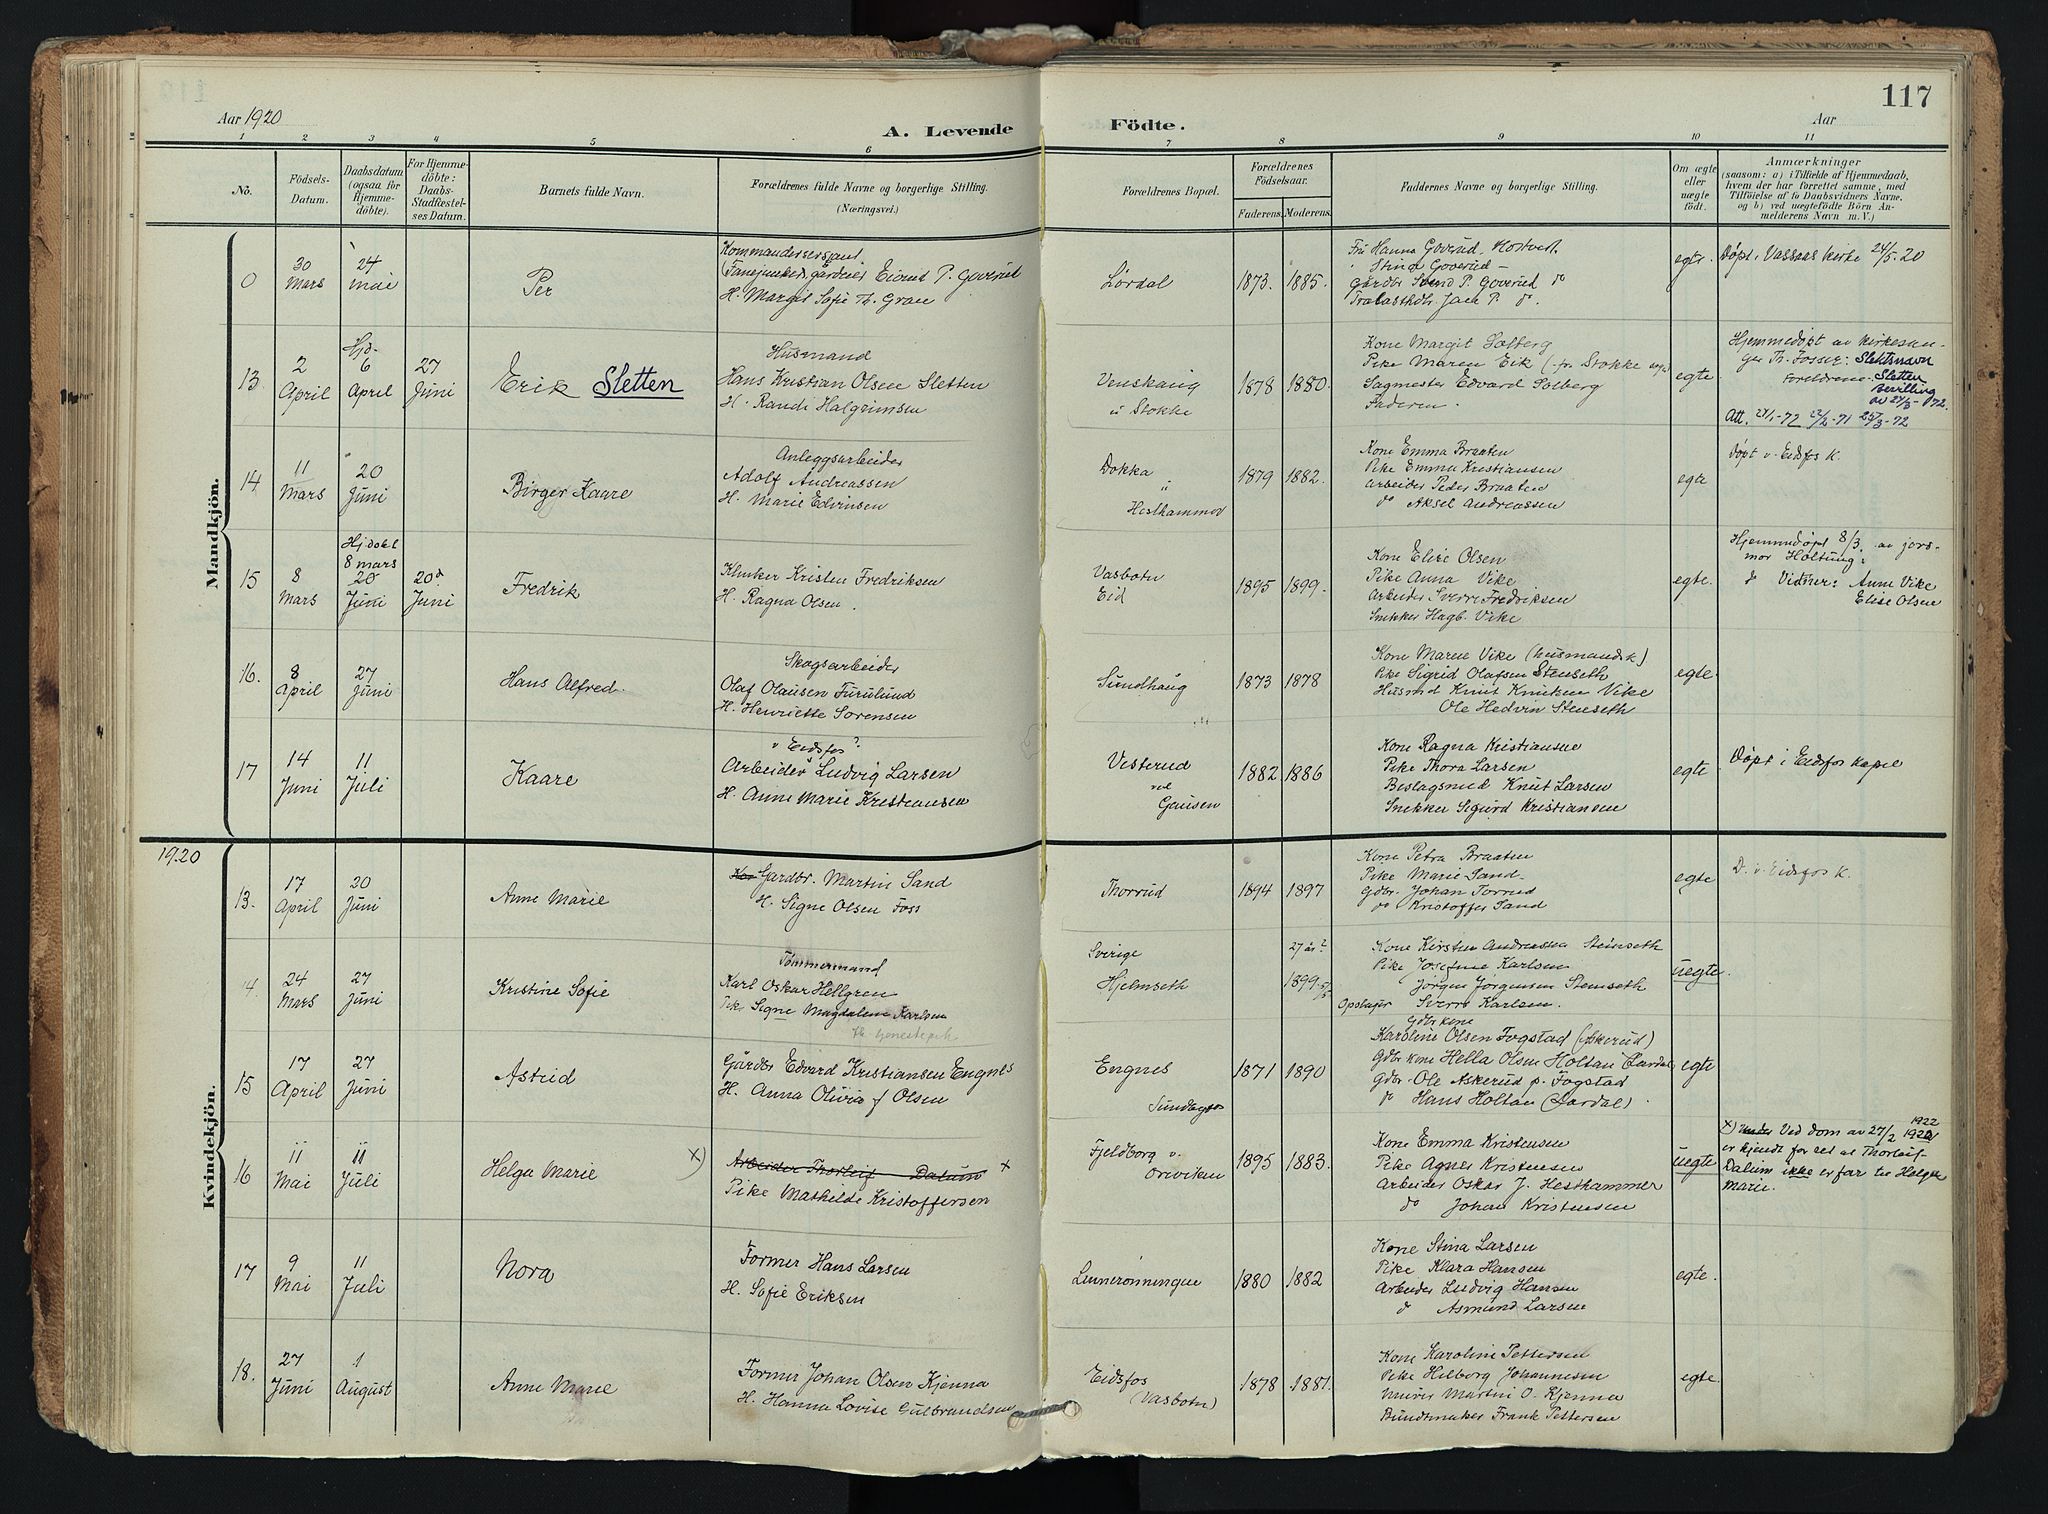 117
Aar 1920
A. Levende
Födte.
Aar
1 2 3 4 5 6 7 8 9 10 11
No.
Födsels-Datum.
Daabsdatum (ogsaa for Hjemme-döbte).
For Hjemme-döbte: Daabs-Stadfæstel-ses Datum.
Barnets fulde Navn.
Forældrenes fulde Navne og borgerlige Stilling.
(Næringsvei.)
Forældrenes Bopæl.
Forældrenes Födselsaar.
Faderens. Moderens.
Faddernes Navne og borgerlige Stilling.
Om ægte eller uægte født.
Anmærkninger
(saasom: a) i Tilfælde af Hjemmedaab,
hvem der har forrettet samme, med
Tilföielse af to Daabsvidners Navne,
og b) ved uægtefödte Börn An-
melderens Navn m. V.)
Mandkjön.
0
30 Mars
24 mai
Per
Kommandersersjant
(Fanejunker), gårdeier Eivind P. Goverud
H. Margit Sofie Th. Grau
Lørdal
1873. 1885.
Fru Hanna Goverud, Hostvedt
Stina Goverud -
Gårdbr Svend P. Goverud do
Jack P. do.
egte.
Døpt i Vassaas kirke 24/5-20
13
2 April
Hjd. 6 April
27 Juni
Erik Sletten
Husmand
Hans Kristian Olsen Sletten
H. Randi Halgrimsen
Venskaug
i Stokke
1878 1880.
Kone Margit Solberg
Pike Maren Eik (fra Stokke
Sagmester Edvard Solberg
Faderen.
egte
Hjemmedøpt av kirkesan-
ger Th. Fosser: Slektsnavn
foreldrene: Sletten
bevilling
av 24/3-1972.
Att. 24/1-72 22/2-71 25/3-72
14.
11 Mars
20 Juni
Birger Kaare
Anleggsarbeider
Adolf Andreassen
H. Marie Edvinsen
Dokka
Hesthammer
1879 1882.
Kone Emma Braaten
Pike Emma Kristiansen
Arbeider Peder Braaten
do Aksel Andreassen
egte
Døpt v. Eidsfos K.
15
8 Mars
Hj.døbt 8 mars
20 Juni
20de Juni
Fredrik
Klinker Kristen Fredriksen
H. Ragna Olsen.
Vasbotn
Eid
1895 1899.
Kone Elise Olsen
Pike Anna Vike
Arbeider Sverre Fredriksen
Snekker Hagb. Vike
egte.
Hjemmedøpt 8/3. av jors-
mor Holtung:
Vidner: Anne Vike
Elise Olsen
16.
8 April
27 Juni
Hans Alfred.
Skogsarbeider
Olaf Olausen Furulund
H. Henriette Sorensen
Sundhaug
1873 1878
Kone Maren Vike (husmandsk)
Pike Sigrid Olafsen Stenseth
Husmd Knut Knutsen Vike
Ole Hedvin Stenseth
egte.
17
14 Juni
11 Juli
Kaare
v Eidsfos?
Arbeider Ludvig Larsen
H. Anne Marie Kristiansen
Vesterud
ved
Gausen
1882 1886
Kone Ragna Kristiansen
Pike Thora Larsen
Beslagsmed Knut Larsen
Snekker Sigurd Kristiansen
egte
Døpt i Eidsfos kapel
1920
Kvindekjön.
13.
17 April
20 Juni
Anne Marie
Gardbr. Martin Sand
H. Signe Olsen Foss
Thorrud
1894 1897
Kone Petra Braaten
Pike Marie Sand
Gdbr. Johan Torrud
do Kristoffer Sand
egte
D. v. Eidsfos K.
14.
24 Mars
27 Juni
Kristine Sofie
Tømmermand
Karl Oskar Hellgren
Pike Signe Magdalene Karlsen
fh. tjenestepik
Sverige
Hjelmseth
27 år?
1899 5/5
Kone Kirsten Andreassen Stenseth
Pike Josefine Karlsen
Jörgen Jørgensen Stenseth
Opsitter Sverre Karlsen.
uegte.
15
17 April
27 Juni
Astrid
Gårdbr Edvard Kristiansen Engnes
H. Anna Olivia f Olsen
Engnes
Sundbyfos
1871 1890
Gdbr kone
Karoline Olsen Fogstad (Askerud)
Gdbr kone Hella Olsen Holtan (Lardal)
Gdbr. Ole Askerud p. Fogstad
do Hans Holtan (Lardal)
egte
16
11 Mai
11 Juli
Helga Marie
x)
Arbeider Thorleif Dalum x
Pike Mathilde Kristoffersen
Fjeldborg v.
Oreviken
1895 1883.
Kone Emma Kristensen
Pike Agnes Kristensen
Arbeider Oskar J. Hesthammer
do Johan Kristensen
uegte
x) Ved dom av 27/2 1922
er kjendt for ret at Thorleif
Dalum ikke er far til Helga
Marie.
17
9 Mai
11 Juli
Nora
Former Hans Larsen
H. Sofie Eriksen
Linnerønningen
1880 1882
Kone Stina Larsen
Pike Klara Hansen
Arbeider Ludvig Hansen
do Asmund Larsen
egte.
18.
27 Juni
1 August
Anne Marie
Former Johan Olsen Kjenna
H. Hanna Lovise Gulbrandsen
Eidsfos
(Vasbotn)
1878 1881.
Kone Karoline Pettersen
Pike Hilborg Johannesen
Murer Martin O. Kjenna
Bundtmaker Frank Pettersen
egte